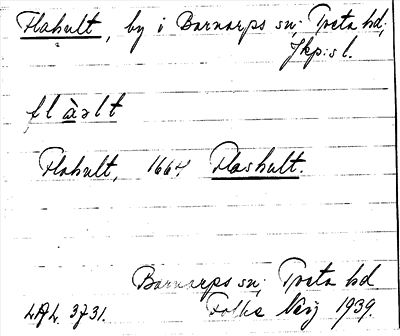 Flahult, by i Barnarps sn; Tveta hd;
Jkp:s l.
flàəlt
Flahult, 1664 Flashult.
Barnarps sn; Tveta hd
LAL. 3731. Folke Nerj 1939.